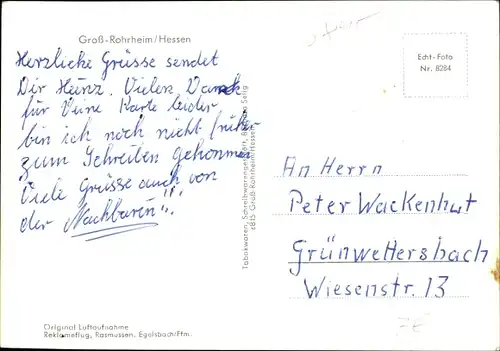 Groß-Rohrheim/Hessen
Herzliche Grüsse sendet
Dir Heinz. Vielen Dank
für Deine Karte leider
bin ich noch nicht früher
zum Schreiben gekommen
Viele grüsse auch von
der Nachbarin"!
Original Luftaufnahme
Reklameflug, Rasmussen, Egelsbach/Ffm.
Tabakwaren, Schreibwaren
6845 Groß-Rohrheim/Hessen
Echt-Foto
Nr. 8284
An Herrn
Peter Wackenhut
Grünwettersbach
Wiesenstr. 13
7€